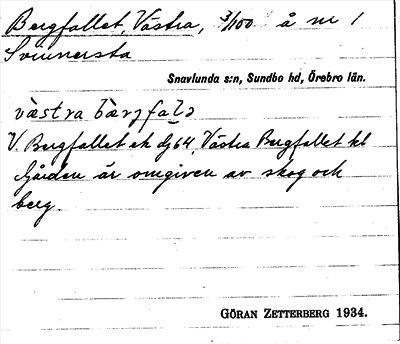 Bergfallet, Västra, 3/100 å nr 1
Svinnersta
Snavlunda s:n, Sundbo hd, Örebro län.
västra bærjfalɔ
V. Bergfallet ek dg64, Västra Bergfallet kl
Gården är omgiven av skog och
berg.
GÖRAN ZETTERBERG 1934.